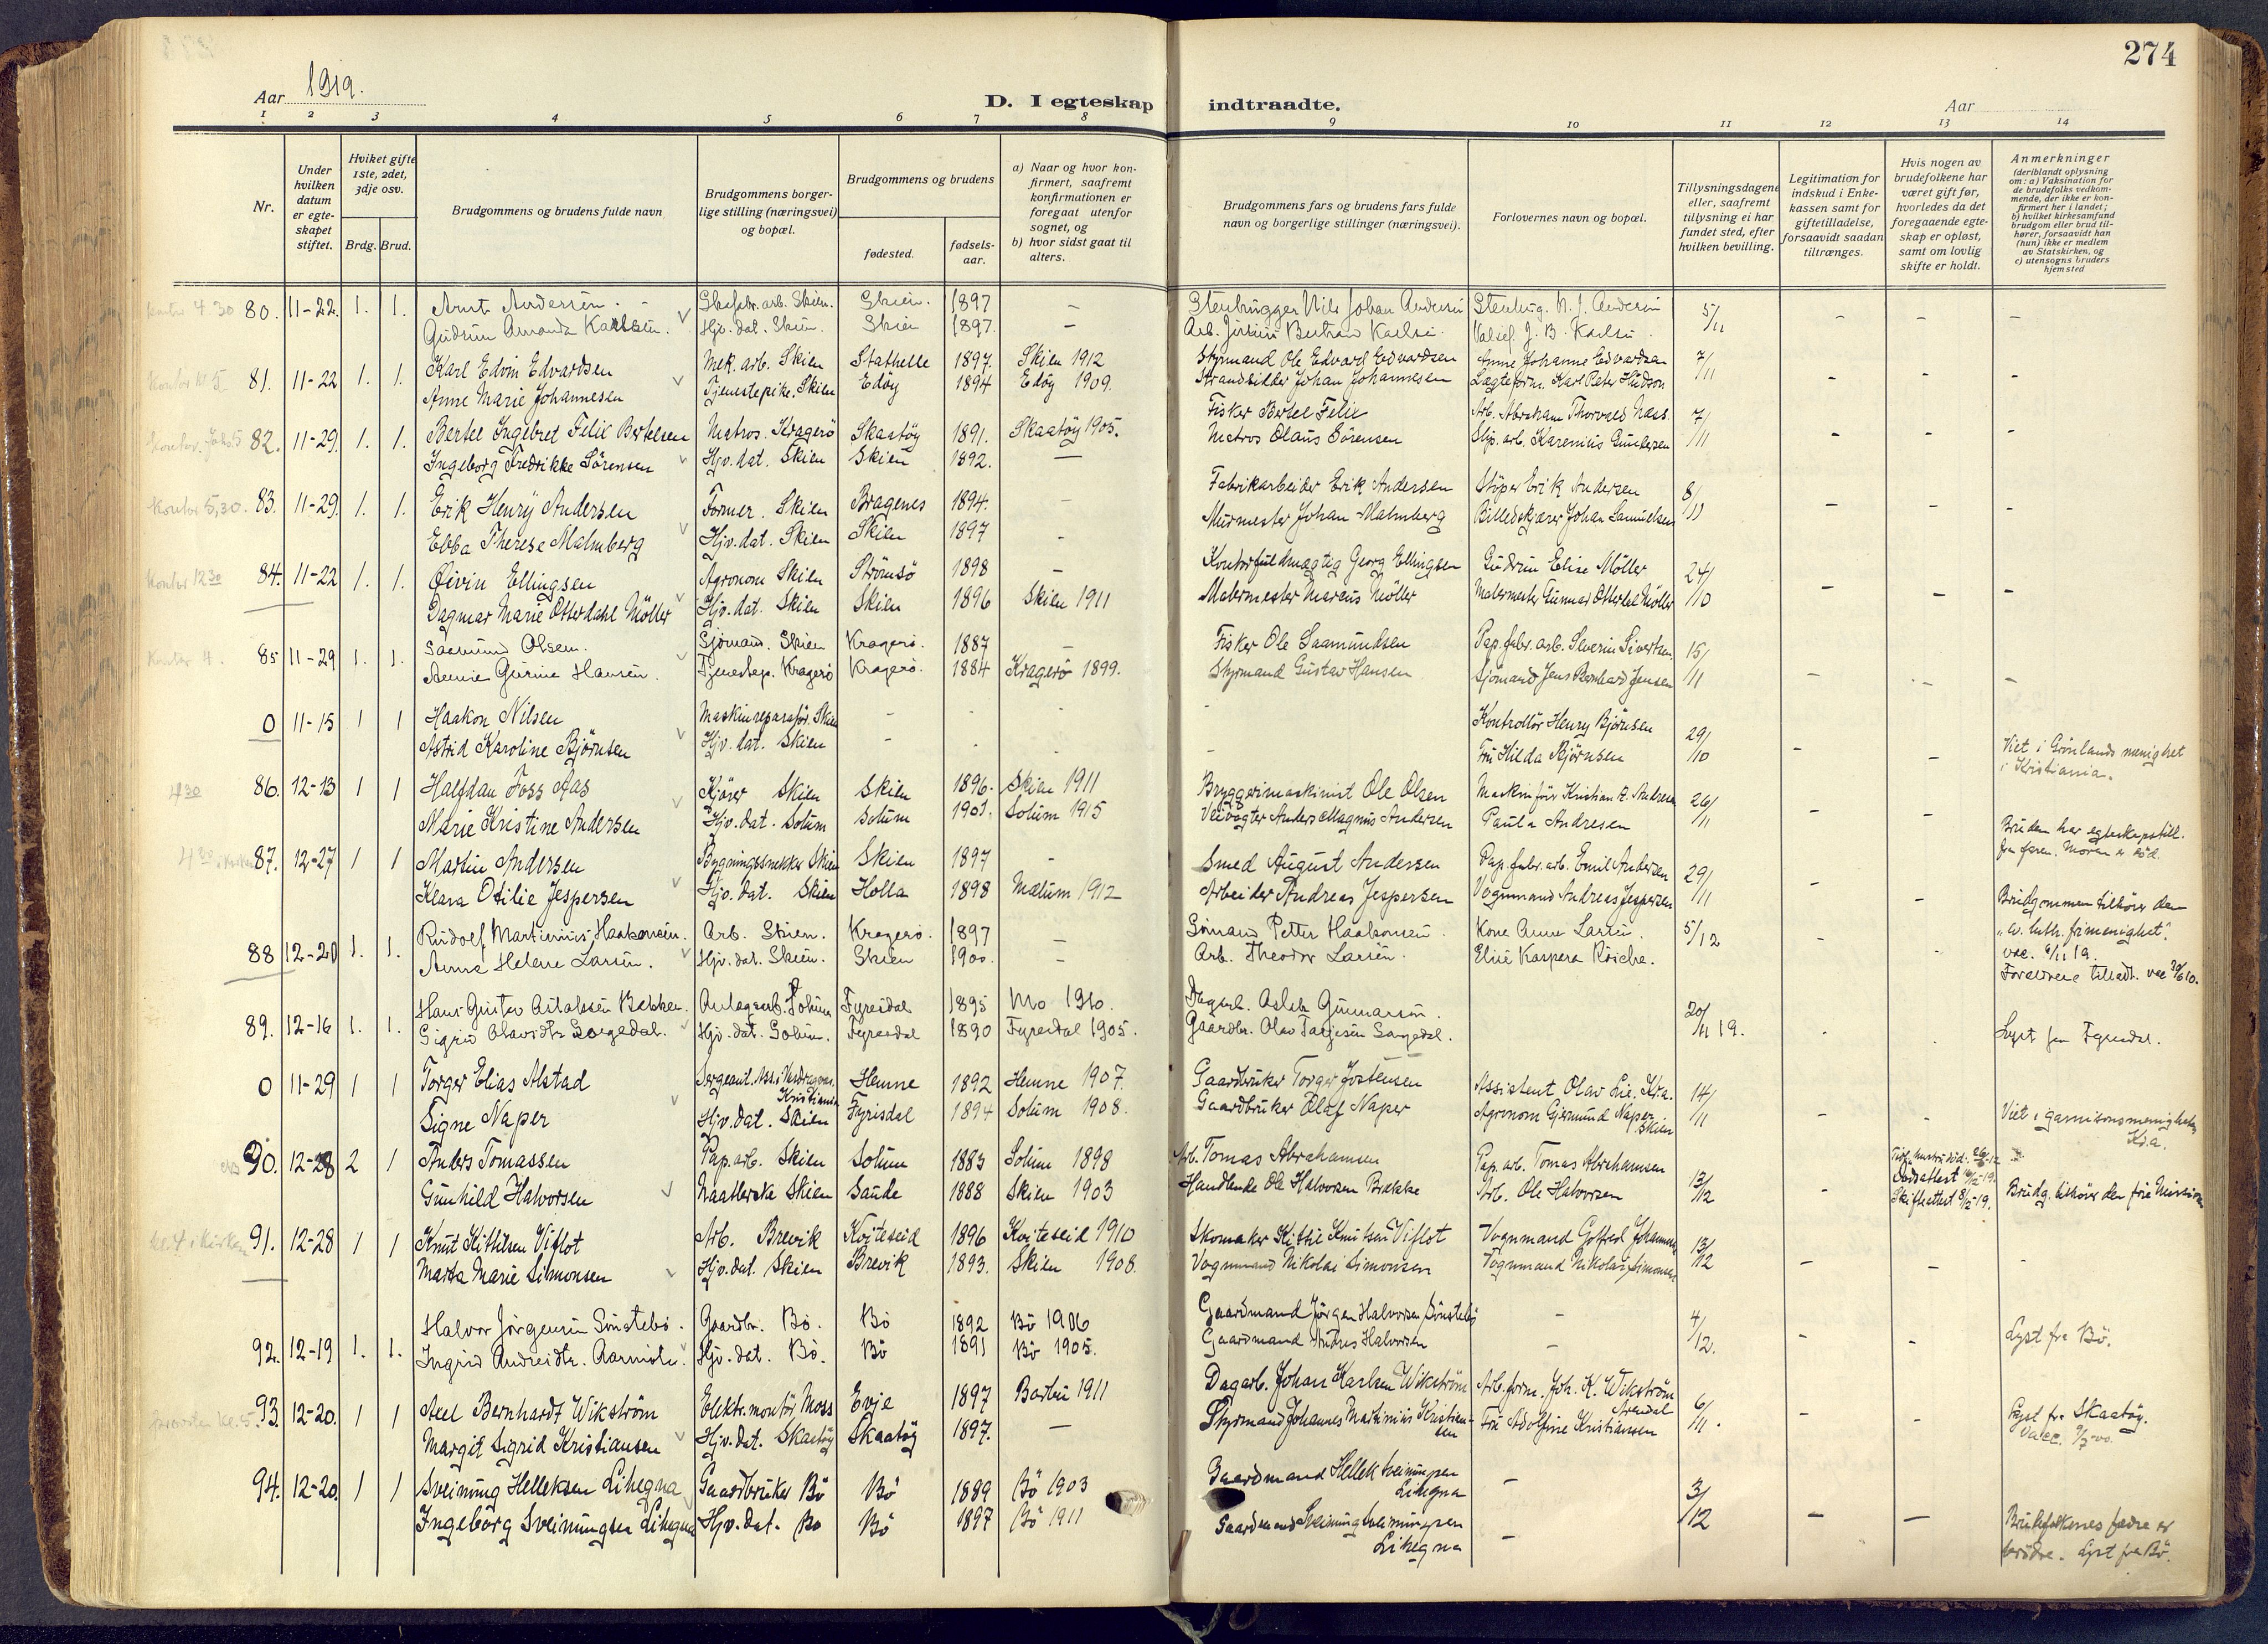 274
Aar 1919.
D. I egteskap indtraadte.
Aar
1 2 3 4 5 6 7 8 9 10 11 12 13 14
Nr.
Under hvilken datum er egteskapet stiftet.
Hvilket gifte 1ste, 2det, 3dje osv.
Brdg. Brud.
Brudgommens og brudens fulde navn
Brudgommens borgerlige stilling (næringsvei) og bopæl.
Brudgommens og brudens
fødested.
fødselsaar.
a) Naar og hvor konfirmert, saafremt konfirmationen er foregaat utenfor sognet, og
b) hvor sidst gaat til alters.
Brudgommens fars og brudens fars fulde navn og borgerlige stillinger (næringsvei).
Forlovernes navn og bopæl.
Tillysningsdagene eller, saafremt tillysning ei har fundet sted, efter hvilken bevilling.
Legitimation for indskud i Enkekassen samt for giftetilladelse, forsaavidt saadan tiltrænges.
Hvis nogen av brudefolkene har været gift før, hvorledes da det foregaaende egteskap er opløst, samt om lovlig skifte er holdt.
Anmerkninger (deriblandt oplysning om: a) Vaksination for de brudefolks vedkommende, der ikke er konfirmert her i landet; b) hvilket kirkesamfund brudgom eller brud tilhører, forsaavidt han (hun) ikke er medlem av Statskirken, og c) utensogns bruders hjemsted
kontor 4.30 80. 11-22. 1. 1. Arnt Andersen. arb. Skien. Skien. 1897 - Stenhugger Nils Johan Andersen Stenhug. N. J. Andersen 5/11 - - -
Gudrun Amanda Karlsen. Hjv. dat. Skien. Skien 1897. - Arb. Bertrau Karlsen. J. B. Karlsen.
Kontor kl. 5 81. 11-22 1. 1. Karl Edvin Edvardsen Mek. arb. Skien Stathelle 1897. Skien 1912 Styrmand Ole Edvard Edvardsen Anne Johanne Edvardsen 7/11 - - -
Anne Marie Johannesen Tjenestepike. Skien Edøy 1894 Edøy 1909. Strandsidder Johan Johannesen Karl Peter
82. 11-29. 1. 1. Bertel Ingebret Felix Bertelsen Matros. Kragerö Skaatöy 1891. Skaatöy 1905. Fisker Bertel Felix Arb. Abraham Thorvald Næss. 7/11 - - -
Ingeborg Fredrikke Sörensen Hjv. dat. Skien Skien 1892. - Matros Olaus Sörensen Slip. arb. Karenius Gundersen
Kontor 5,30. 83. 11-29. 1. 1. Erik Henry Andersen Former. Skien Bragenes 1894. - Fabrikarbeider Erik Andersen Stöper Erik Andersen 8/11 - - -
Ebba Therese Malmberg Hjv. dat. Skien Skien 1897 - Murmester Johan Malmberg Billedskjærer Johan Samuelsen
kontor 12 30 84. 11-22 1. 1. Öivin Ellingsen Agronom Skien Strömsö 1898 - Kontorfuldmægtig Georg Ellingsen Gudrun Elise Möller 24/10 - - -
Dagmar Marie Otterdahl Möller Hjv. dat. Skien Skien 1896 Skien 1911 Malermester Marcus Möller Malermester Gunnar Otterdal Möller
Kontor 4. 85 11-29 1. 1. Saamund Olsen. Sjömand. Skien Kragerö. 1887 - Fisker Ole Saamundsen Pap. fabr. arb. Severin Sivertsen. 15/11 - - -
Annie Gurine Hansen. Tjenestep. Kragerö Kragerö. 1884 Kragerö 1899. Styrmand Gustav Hansen Sjömand Jens Bernhard Jensen
0 11-15 1 1 Haakon Nilsen Maskinreparatör. Skien - - - - Kontrollör Henry Björnsen 29/10 - -
Astrid Karoline Björnsen Hjv. dat. Skien - - - - Fru Hilda Björnsen Viet i Grönlands menighet i Kristiania.
4 30 86. 12-13 1 1 Halfdan Foss Aas Kjörer Skien Skien 1896. Skien 1911 Bryggerimaskinist Ole Olsen Maskinförer Kristian A. Andresen 26/11 - -
Marie Kristine Andersen Hjv. dat. Solum Solum 1901. Solum 1915 Veivogter Anders Magnus Andersen Paula Andresen Bruden har egteskapstill. fra faren. Moren er död.
4 30 i kirken 87. 12-27 1 1 Martin Andersen Bygningssnekker Skien Skien 1897 - Smed August Andersen Pap. fabr. arb. Emil Andersen 29/11 - -
Klara Otilie Jespersen Hjv. dat. Skien Holla 1898 Mælum 1912 Arbeider Andreas Jespersen Vognmand Andreas Jespersen Brudgommen tilhörer den "ev. luth. frimenighet".
88 12-20 1. 1. Rudolf Martinius Haakonsen. Arb. Skien. Kragerö. 1897 - Sömand Petter Haakonsen. Kone Anne Larsen. 5/12 - - vac. 6/11 19.
Anna Helene Larsen. Hjv. dat. Skien. Skien 1900 - Arb. Theodor Larsen. Elise Kaspera Foreldrene tilladt.
89. 12-16 1. 1. Hans Gustav Aslaksen Bakken. Anlægsarb. Solum Fyresdal 1895 Mo 1910. Dagarb. Aslak Gunnarsen. 20/11 19. - -
Sigrid Olavsdtr. Songedal. Hjv. dat. Solum. Fyresdal 1890 Fyresdal 1905. Gaardbr. Olav Tarjesen Songedal. Lyst fra Fyresdal.
0 11-29 1 1 Torger Elias Alstad Sergeant. Kristiania Hemne 1892 Hemne 1907. Gaardbruker Torger Jostensen Assistent Olav Lie. Kr.a. 14/11 - -
Signe Naper Hjv. dat. Skien Fyrisdal 1894 Solum 1908. Gaardbruker Olaf Naper Agronom Gjermund Naper Skien Viet i garnisonsmenigheten Kr.a.
90. 12-28 2 1 Anders Tomassen Pap. arb. Skien Solum 1883 Solum 1898 Arb. Tomas Abrahamsen Pap. arb. Tomas Abrahamsen 13/12 -
Gunhild Halvorsen Skien Saude 1888 Skien 1903 Handlende Ole Halvorsen Brække Arb. Ole Halvorsen Dödsattest Skifteattest Brudg. tilhörer den frie Mission
kl. 4 i kirken 91. 12-28 1 1 Knut Kittilsen Viflot Arb. Brevik Kviteseid 1896 Kviteseid 1910 Skomaker Kittil Knutsen Viflot Vognmand Gotfred Johannesen 13/12 - - -
Marta Marie Simonsen Hjv. dat. Skien Brevik 1893. Skien 1908. Vognmand Nikolai Simonsen Vognmand Nikolai Simonsen
92. 12-19 1. 1. Halvor Jørgensen Sönstebö. Gaardbr. Bö. Bö 1892 Bö 1906 Gaardmand Jørgen Halvorsen Sönstebö - 4/12. - - Lyst fra Bö.
Ingrid Andreidtr. Aarmote. Hjv. dat. Bö. Bö 1891 Bö 1905. Gaardmand Andres Halvorsen -
93. 12-20. 1 1 Axel Bernhardt Wikström Elektr. montör, Moss Evje 1897 Barbu 1911 Dagarb. Johan Karlsen Wikström Arb. form. Joh. K. Wikström Arendal 6/11. - - Lyst fra Skaatöy.
Margit Sigrid Kristiansen Hjv. dat. Skaatöy Skaatöy 1897. - Styrmand Johannes Martinius Kristiansen Fru Adolfine Kristiansen
94. 12-20. 1 1 Sveinung Helleksen Lihegna Gaardbruker Bö Bö 1889 Bö 1903 Gaardmand Hellek Sveinungsen Lihegna - 3/12 - -
Ingeborg Sveinungsen Lihegna Hjv. dat. Bö Bö 1897 Bö 1911 Gaardmand Sveinung Sveinungsen Lihegna - Brudefolkenes fædre er brödre. Lyst fra Bö.